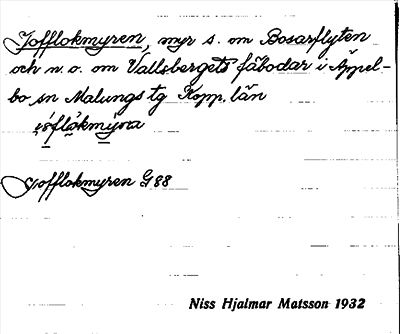 Jofflokmyren, myr s. om Bosarflyten
och n.o. om Vallsbergets fäbodar i Äppel-
bo sn Malungs tg Kopp. län
Jofflokmyren G 88
Niss Hjalmar Matsson 1932